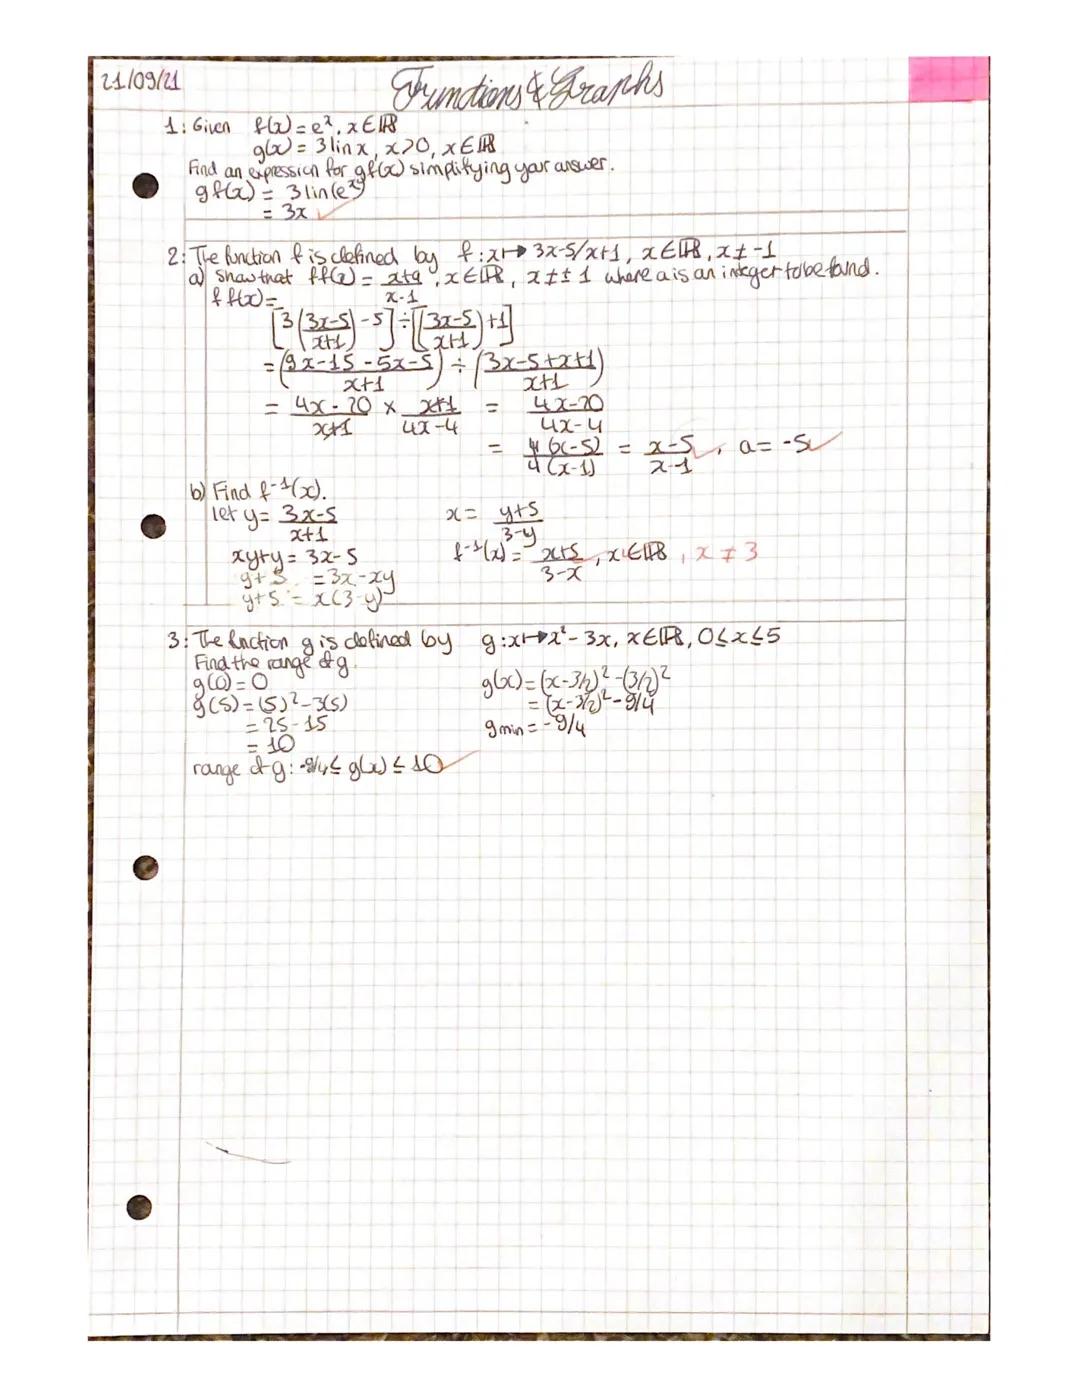 21/09/21
Functions & Graphs
1: Given f(x) = eˣ, x ∈ ℝ
g(x) = 3 lin x, x>0, x ∈ ℝ
Find an expression for gf(x) simplifying your answer.
gf(x) = 3 lin(eˣ)
= 3x ✓
2: The function f is defined by f: x ↦ 3x-5/x+1, x ∈ ℝ, x ≠ -1
a) Show that ff(x) = x+a/x-1, x ∈ ℝ, x ≠ ± 1 where a is an integer to be found.
f f(x) =
[3(3x-5/x+1) - 5] ÷ [(3x-5/x+1) + 1]
= (9x-15-5x-5/x+1) ÷ (3x-5+x+1/x+1)
= 4x-20/x+1 × x+1/4x-4 = 4x-20/4x-4
= 4(x-5)/4(x-1) = x-5/x-1 ✓, a = -5 ✓
b) Find f⁻¹(x).
let y = 3x-5/x+1
xy+y = 3x-5
y+5 = 3x-xy
y+5 = x(3-y)
x = y+5/3-y
f⁻¹(x) = x+5/3-x, x ∈ ℝ, x ≠ 3
3: The function g is defined by g: x ↦ x²- 3x, x ∈ ℝ, 0 ≤ x ≤ 5
Find the range of g.
g(0) = 0
g(5) = (5)²-3(5)
= 25-15
= 10
g(x) = (x-3/2)² - (3/2)²
= (x-3/2)² - 9/4
g min = -9/4
range of g: -9/4 ≤ g(x) ≤ 10 ✓